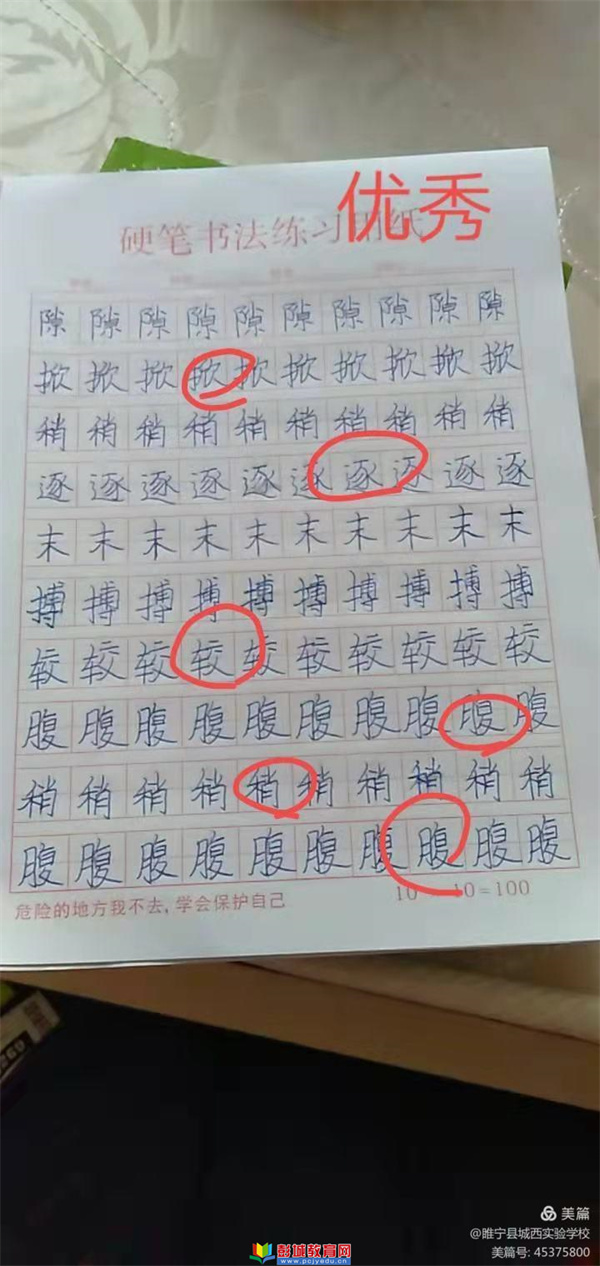 优秀
硬笔书法练习用纸
隙隙隙隙隙隙隙隙隙隙
掀掀掀掀掀掀掀掀掀掀
稍稍稍稍稍稍稍稍稍稍
逐逐逐逐逐逐逐逐逐逐
末末末末末末末末末末
搏搏搏搏搏搏搏搏搏搏
较较较较较较较较较较
腹腹腹腹腹腹腹腹腹腹
稍稍稍稍稍稍稍稍稍稍
腹腹腹腹腹腹腹腹腹腹
危险的地方我不去,学会保护自己 10 10=100
美篇
@睢宁县城西实验学校
美篇号: 45375800
彭城教育网
www.pcjyedu.cn